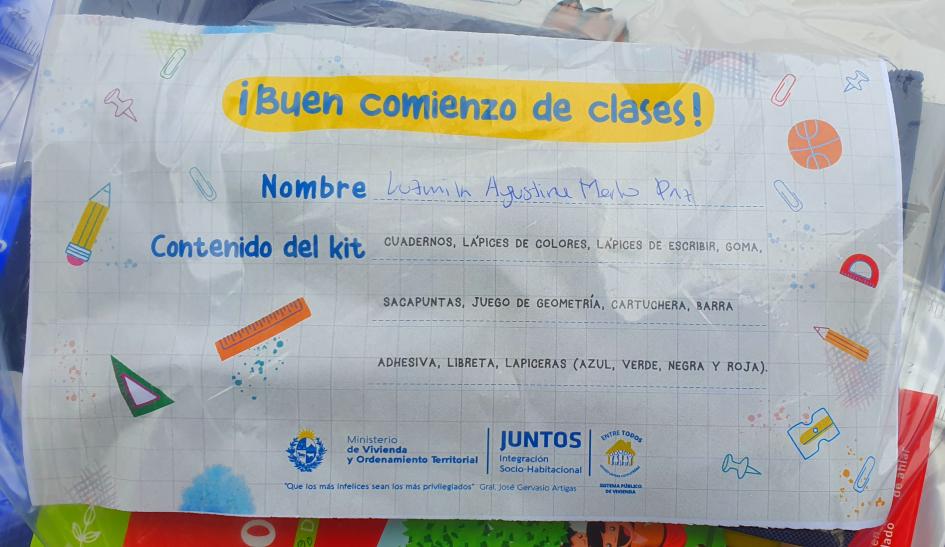 ¡Buen comienzo de clases!
Nombre Luzmila Agustina Merlo Paz
Contenido del kit CUADERNOS, LÁPICES DE COLORES, LÁPICES DE ESCRIBIR, GOMA,
SACAPUNTAS, JUEGO DE GEOMETRÍA, CARTUCHERA, BARRA
ADHESIVA, LIBRETA, LAPICERAS (AZUL, VERDE, NEGRA Y ROJA).
Ministerio
de Vivienda
y Ordenamiento Territorial
JUNTOS
Integración
Socio-Habitacional
ENTRE TODOS
SISTEMA PÚBLICO
DE VIVIENDA
"Que los más infelices sean los más privilegiados" Gral. José Gervasio Artigas